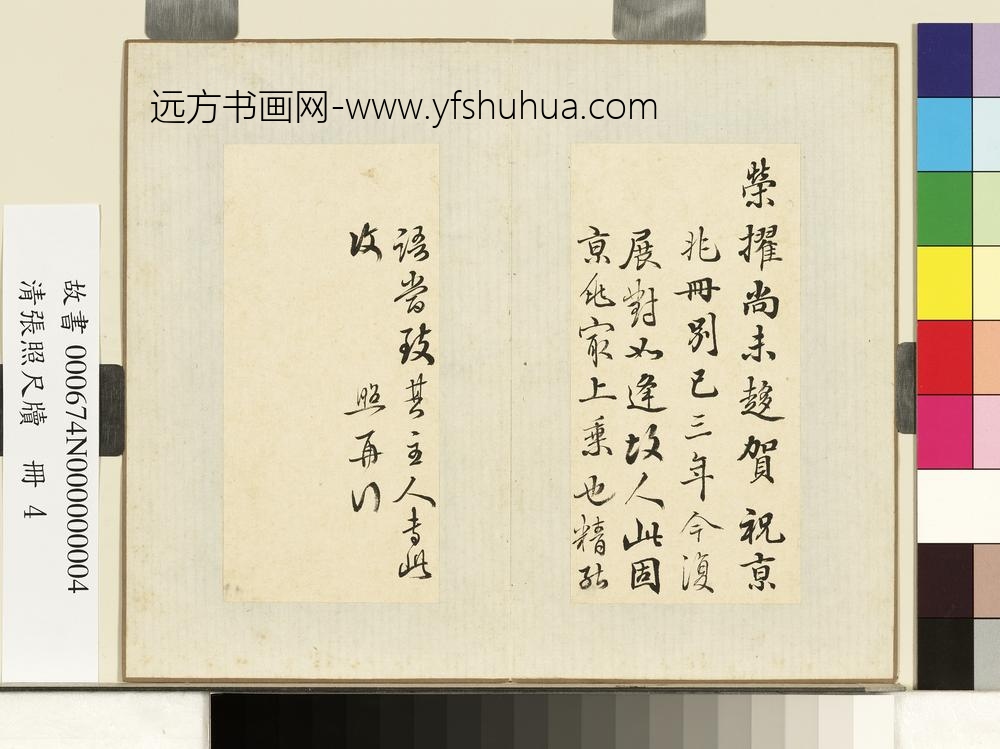 远方书画网-www.yfshuhua.com
榮擢尚未趍賀祝京
兆冊別已三年今復
展對如逢故人此固
京兆家上乘也精於
語當致其主人專此
照再行
故書 000674N000000004
清張照尺牘 冊 4